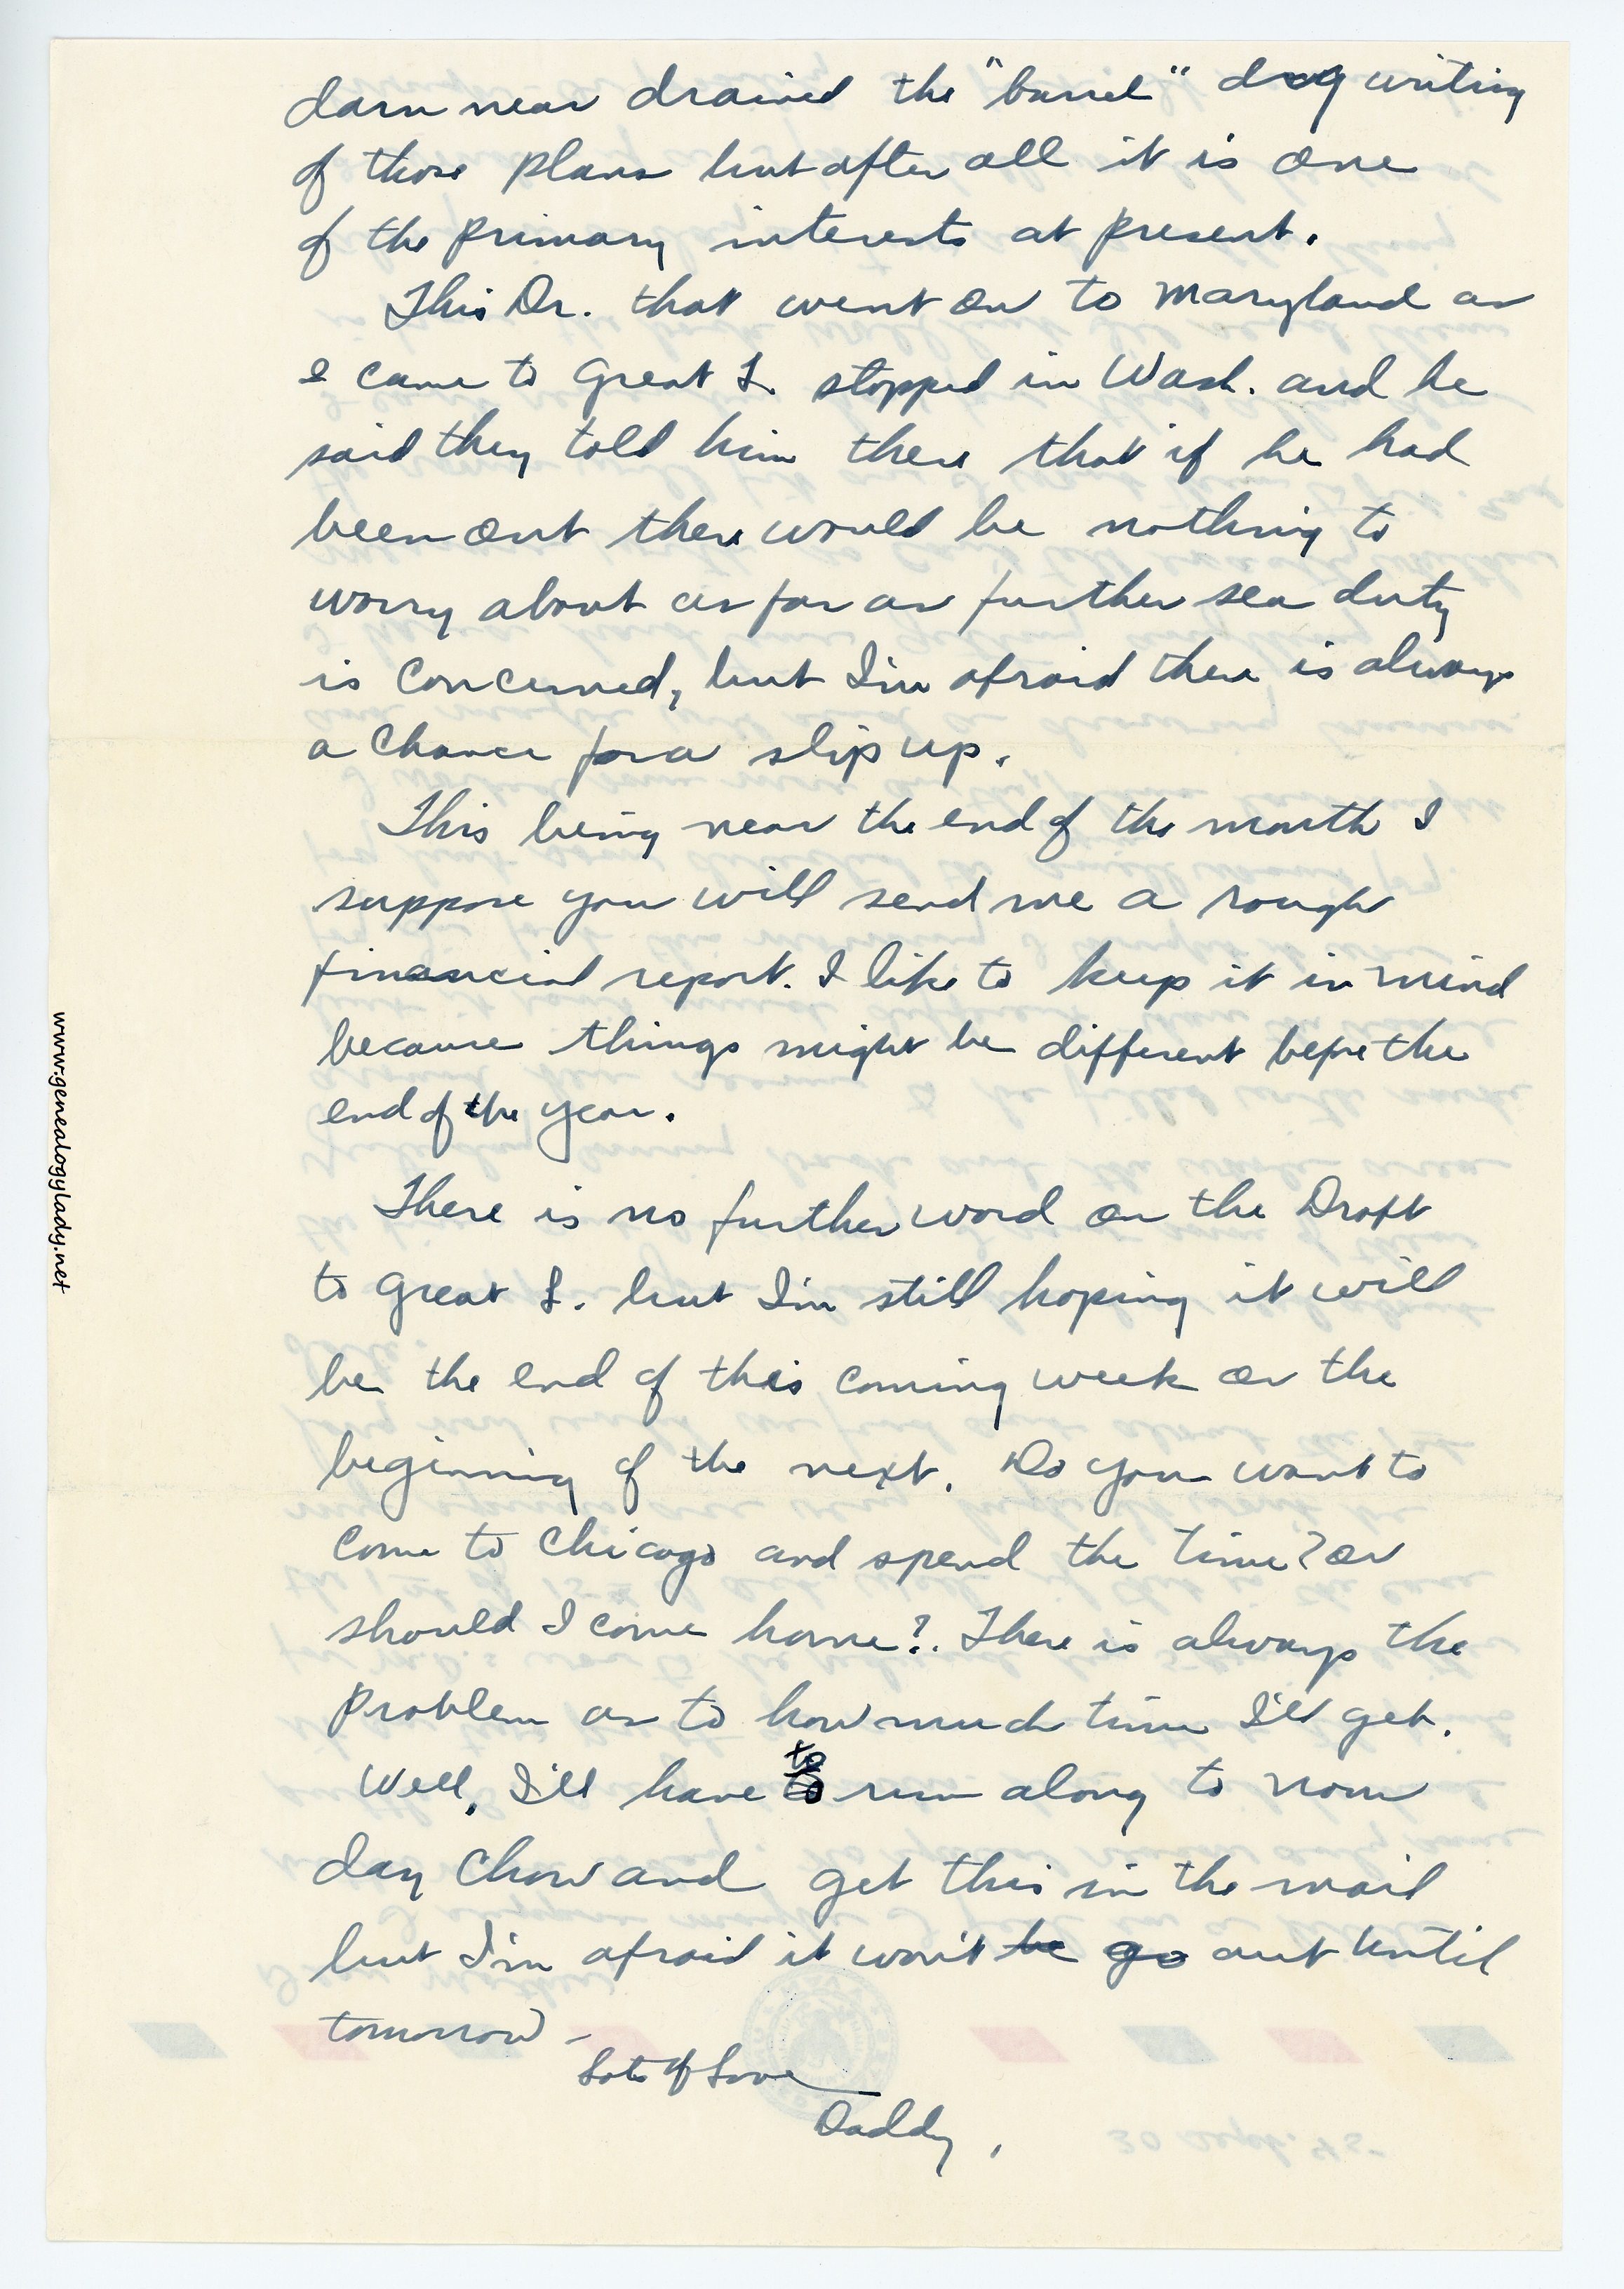 darn near drained the "barrel" dry writing
of those plans but after all it is one
of the primary interests at present.
This Dr. that went on to Maryland as
I came to Great L. stopped in Wash. and he
said they told him there that if he had
been out there would be nothing to
worry about as far as further sea duty
is concerned, but I'm afraid there is always
a chance for a slip up.
This being near the end of the month I
suppose you will send me a rough
financial report. I like to keep it in mind
because things might be different before the
end of the year.
There is no further word on the Draft
to Great L. but I'm still hoping it will
be the end of this coming week or the
beginning of the next. Do you want to
come to Chicago and spend the time? or
should I come home?. There is always the
problem as to how much time I'll get.
Well, I'll have to run along to noon
day chow and get this in the mail
but I'm afraid it won't be go out until
tomorrow -
Lots of Love
Daddy,
www.genealogylady.net